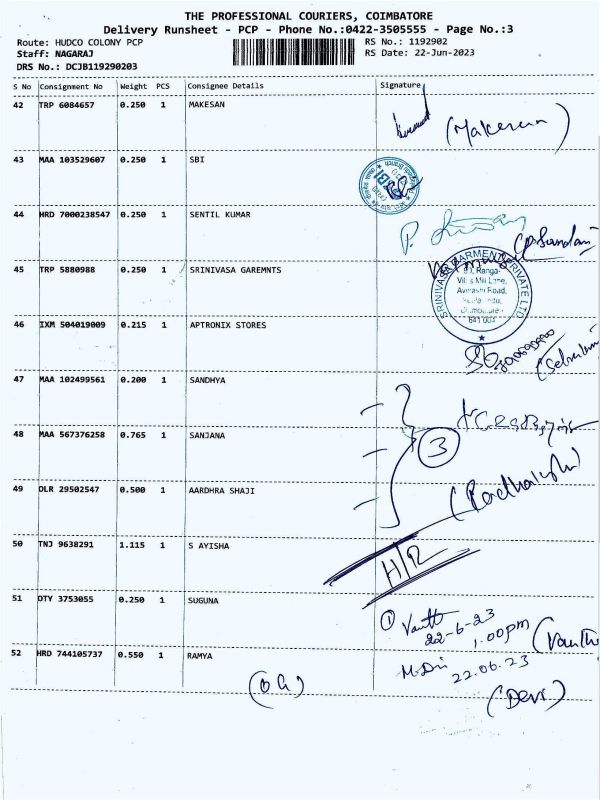 THE PROFESSIONAL COURIERS, COIMBATORE
Delivery Runsheet - PCP - Phone No.:0422-3505555 - Page No.:3
Route: HUDCO COLONY PCP
RS No.: 1192902
Staff: NAGARAJ
RS Date: 22-Jun-2023
DRS No.: DCJB119290203
S No Consignment No Weight PCS Consignee Details Signature
42 TRP 6084657 0.250 1 MAKESAN
43 MAA 103529607 0.250 1 SBI
SBI
44 HRD 7000238547 0.250 1 SENTIL KUMAR
45 TRP 5880988 0.250 1 SRINIVASA GAREMNTS
SRINIVASA GARMENTS PRIVATE LTD.
Mill Lane,
Road,
641 004
46 IXM 504019009 0.215 1 APTRONIX STORES
47 MAA 102499561 0.200 1 SANDHYA
48 MAA 567376258 0.765 1 SANJANA
3
49 DLR 29502547 0.500 1 AARDHRA SHAJI
50 TNJ 9638291 1.115 1 S AYISHA
H/R
51 OTY 3753055 0.250 1 SUGUNA
1
22-6-23
1.00pm
52 HRD 744105737 0.550 1 RAMYA
22.06.23